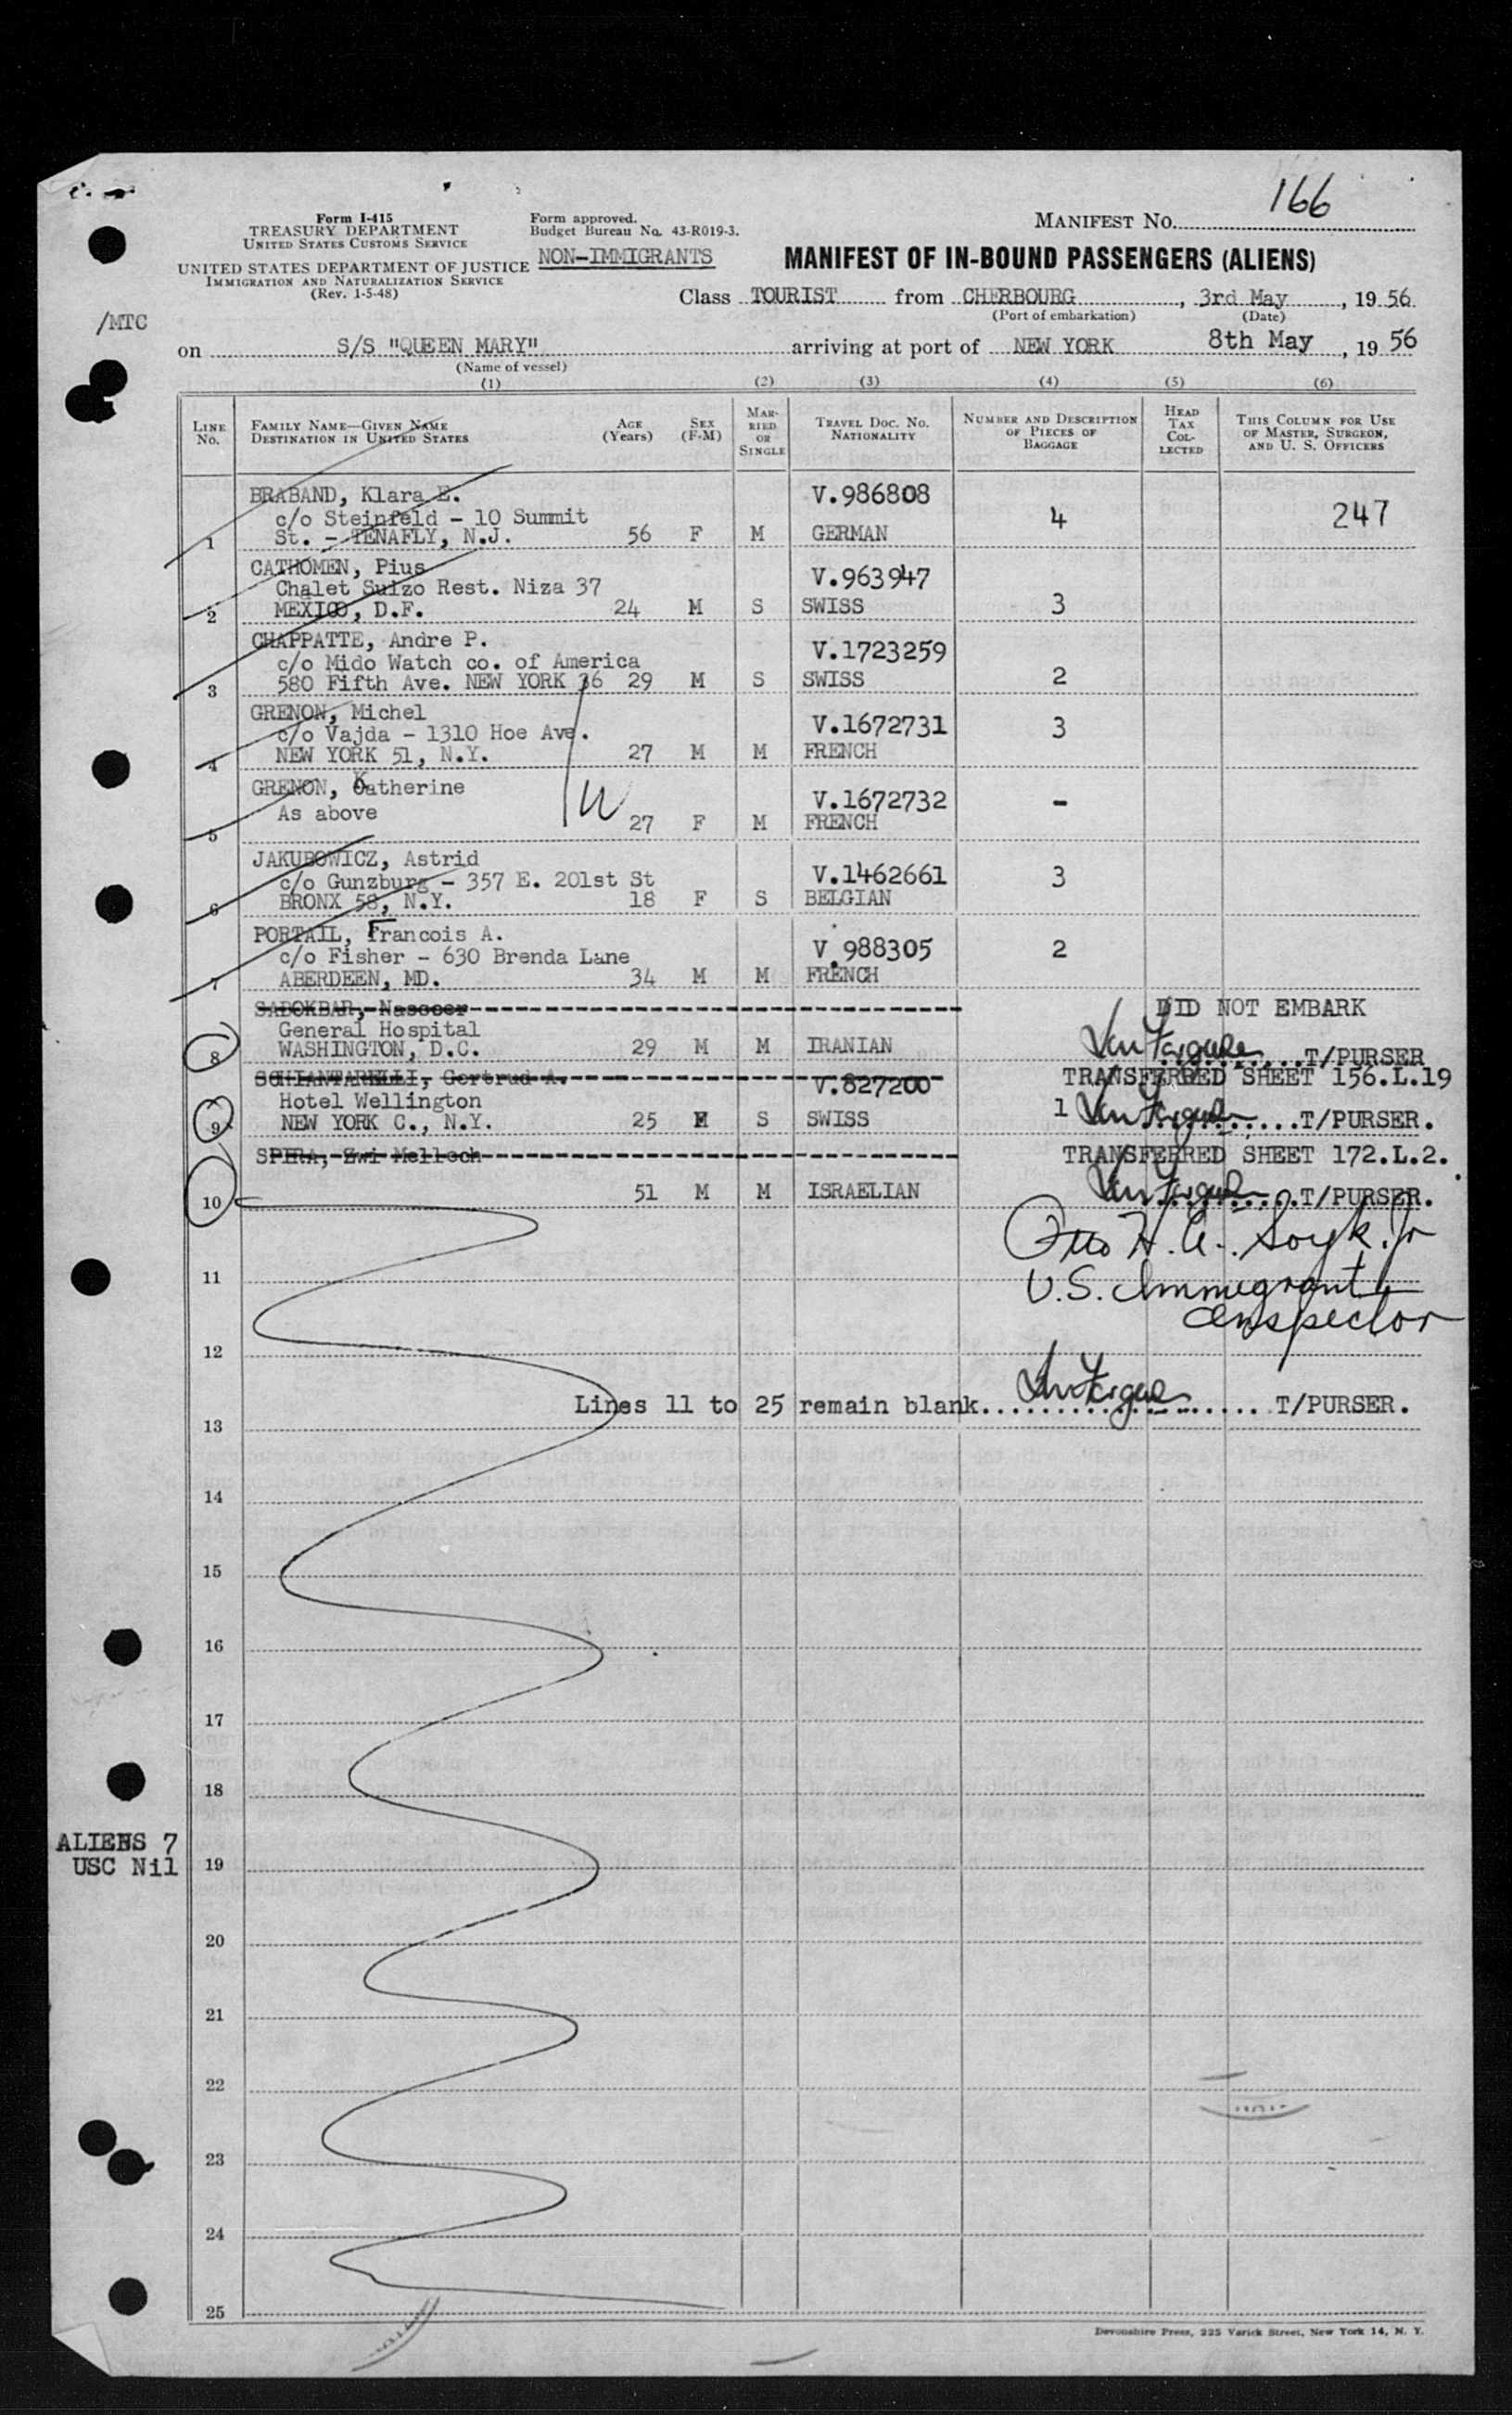 166
Form I-415
TREASURY DEPARTMENT
UNITED STATES CUSTOMS SERVICE
UNITED STATES DEPARTMENT OF JUSTICE
IMMIGRATION AND NATURALIZATION SERVICE
(Rev. 1-5-48)
Form approved.
Budget Bureau No. 43-R019-3.
NON-IMMIGRANTS
MANIFEST NO.
MANIFEST OF IN-BOUND PASSENGERS (ALIENS)
Class TOURIST from CHERBOURG, 3rd May, 19 56
(Port of embarkation) (Date)
/MTC
on S/S "QUEEN MARY" arriving at port of NEW YORK 8th May, 19 56
(Name of vessel)
(1) (2) (3) (4) (5) (6)
LINE No.
FAMILY NAME—GIVEN NAME
DESTINATION IN UNITED STATES
AGE (Years)
SEX (F-M)
MARRIED OR SINGLE
TRAVEL DOC. NO.
NATIONALITY
NUMBER AND DESCRIPTION OF PIECES OF BAGGAGE
HEAD TAX COLLECTED
THIS COLUMN FOR USE OF MASTER, SURGEON, AND U. S. OFFICERS
BRABAND, Klara E. V.986808
c/o Steinfeld - 10 Summit 4 247
1 St. - TENAFLY, N.J. 56 F M GERMAN
CATHOMEN, Pius V.963947
Chalet Suizo Rest. Niza 37
2 MEXICO, D.F. 24 M S SWISS 3
CHAPPATTE, Andre P. V.1723259
c/o Mido Watch co. of America
3 580 Fifth Ave. NEW YORK 36 29 M S SWISS 2
GRENON, Michel V.1672731 3
c/o Vajda - 1310 Hoe Ave.
4 NEW YORK 51, N.Y. 27 M M FRENCH
GRENON, Katherine V.1672732 -
As above
5 27 F M FRENCH
JAKUBOWICZ, Astrid V.1462661 3
c/o Gunzburg - 357 E. 201st St
6 BRONX 58, N.Y. 18 F S BELGIAN
PORTAIL, Francois A. V.988305 2
c/o Fisher - 630 Brenda Lane
7 ABERDEEN, MD. 34 M M FRENCH
SADOKBAR, Nasseer DID NOT EMBARK
General Hospital
8 WASHINGTON, D.C. 29 M M IRANIAN T/PURSER
SCHIANTARELLI, Gertrud A. V.827200 TRANSFERRED SHEET 156.L.19
Hotel Wellington
9 NEW YORK C., N.Y. 25 F S SWISS 1 T/PURSER.
SPIRA, Zwi Melloch TRANSFERRED SHEET 172.L.2.
10 51 M M ISRAELIAN T/PURSER.
Otto H. A. Soyk. Jr
U.S. Immigrant
Inspector
11
12
Lines 11 to 25 remain blank T/PURSER.
13
14
15
16
17
18
ALIENS 7
USC Nil
19
20
21
22
23
24
25
Devonshire Press, 225 Varick Street, New York 14, N. Y.